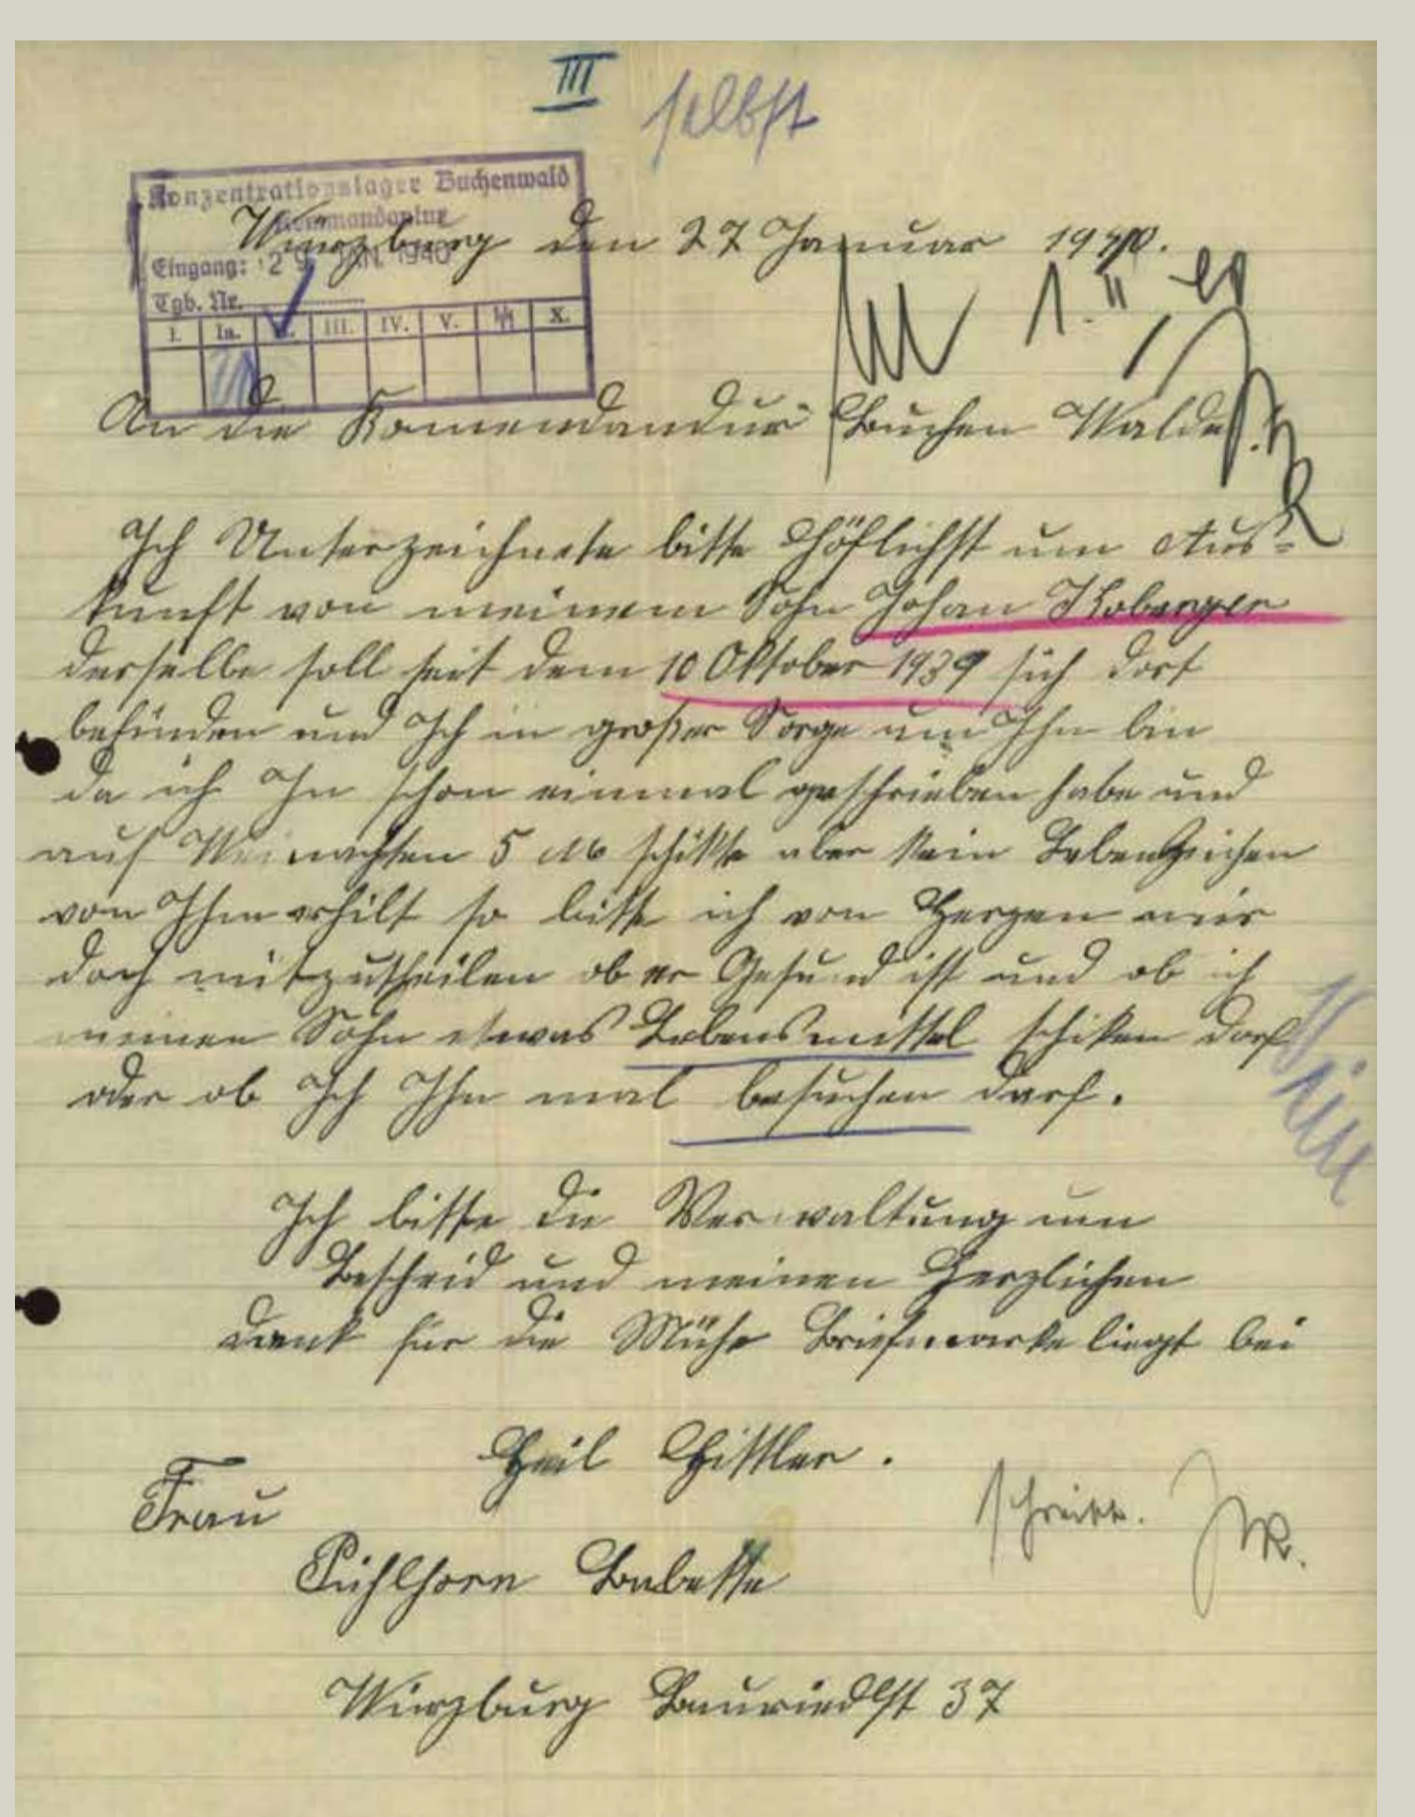 III
selbst
Konzentrationslager Buchenwald
Kommandantur
Eingang: 29. JAN. 1940
Tgb. Nr.
I. Ia. II. III. IV. V. X.
Würzburg den 27 Januar 1940.
1. II
An die Komendandur Buchen Walde
Ich Unterzeichnete bitte Höflichst um Aus-
kunft von meinem Sohn Johan Koberger
derselbe soll seit dem 10 Oktober 1939 sich dort
befinden und Ich in großer Sorge um Ihn bin
da ich In schon einmal geschrieben habe und
auf Weinachten 5 M schikte aber kein Lebenzeichen
von Ihm erhilt so bitte ich von Herzen mir
doch mitzutheilen ob er Gesund ist und ob ich
meinen Sohn etwas Lebensmittel schiken darf
oder ob Ich Ihn mal besuchen darf.
Ich bitte die Verwaltung um
Bescheid und meinen Herzlichen
dank für die Mühe Briefmarke liegt bei
Heil Hittler.
Frau
schreibt.
Pühlhorn Babette
Würzburg Bauriedlst 37